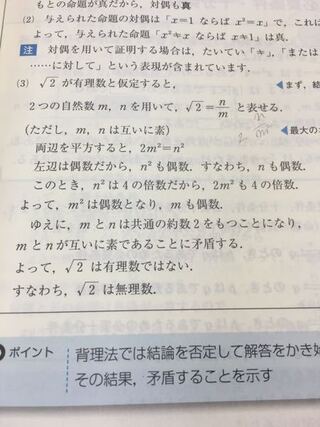 もとの命題が真だから，対偶も真
(2) 与えられた命題の対偶は「x=1 ならば x²=x」で，これに
よって，与えられた命題「x²≠x ならば x≠1」は真．
注 対偶を用いて証明する場合は，たいてい「≠」，「または
……に対して」という表現が含まれています．
(3) √2 が有理数と仮定すると， ◀まず，結
2つの自然数 m，n を用いて，√2=n/m と表せる．
(ただし，m，n は互いに素) ◀最大の
両辺を平方すると，2m²=n²
左辺は偶数だから，n² も偶数．すなわち，n も偶数．
このとき，n² は 4 の倍数だから，2m² も 4 の倍数．
よって，m² は偶数となり，m も偶数．
ゆえに，m と n は共通の約数 2 をもつことになり，
m と n が互いに素であることに矛盾する．
よって，√2 は有理数ではない．
すなわち，√2 は無理数．
ポイント 背理法では結論を否定して解答をかき始
その結果，矛盾することを示す